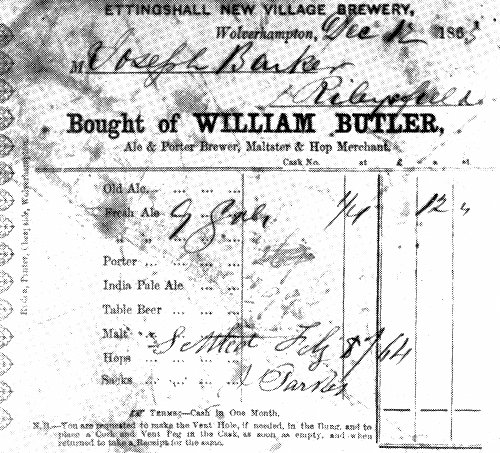 ETTINGSHALL NEW VILLAGE BREWERY,
Wolverhampton, Dec 12 1863
M Joseph Barker
Bought of WILLIAM BUTLER,
Ale & Porter Brewer, Maltster & Hop Merchant.
Cask No. at £ s. d.
Old Ale
Fresh Ale 9 Gals. 1/4 12 "
" "
Porter
India Pale Ale
Table Beer
Malt
Settled Feb 8/64
Hops
Sacks J Parkes
TERMS:—Cash in One Month.
N.B.—You are requested to make the Vent Hole, if needed, in the Bung, and to
place a Cork and Vent Peg in the Cask, as soon as empty, and when
returned to take a Receipt for the same.